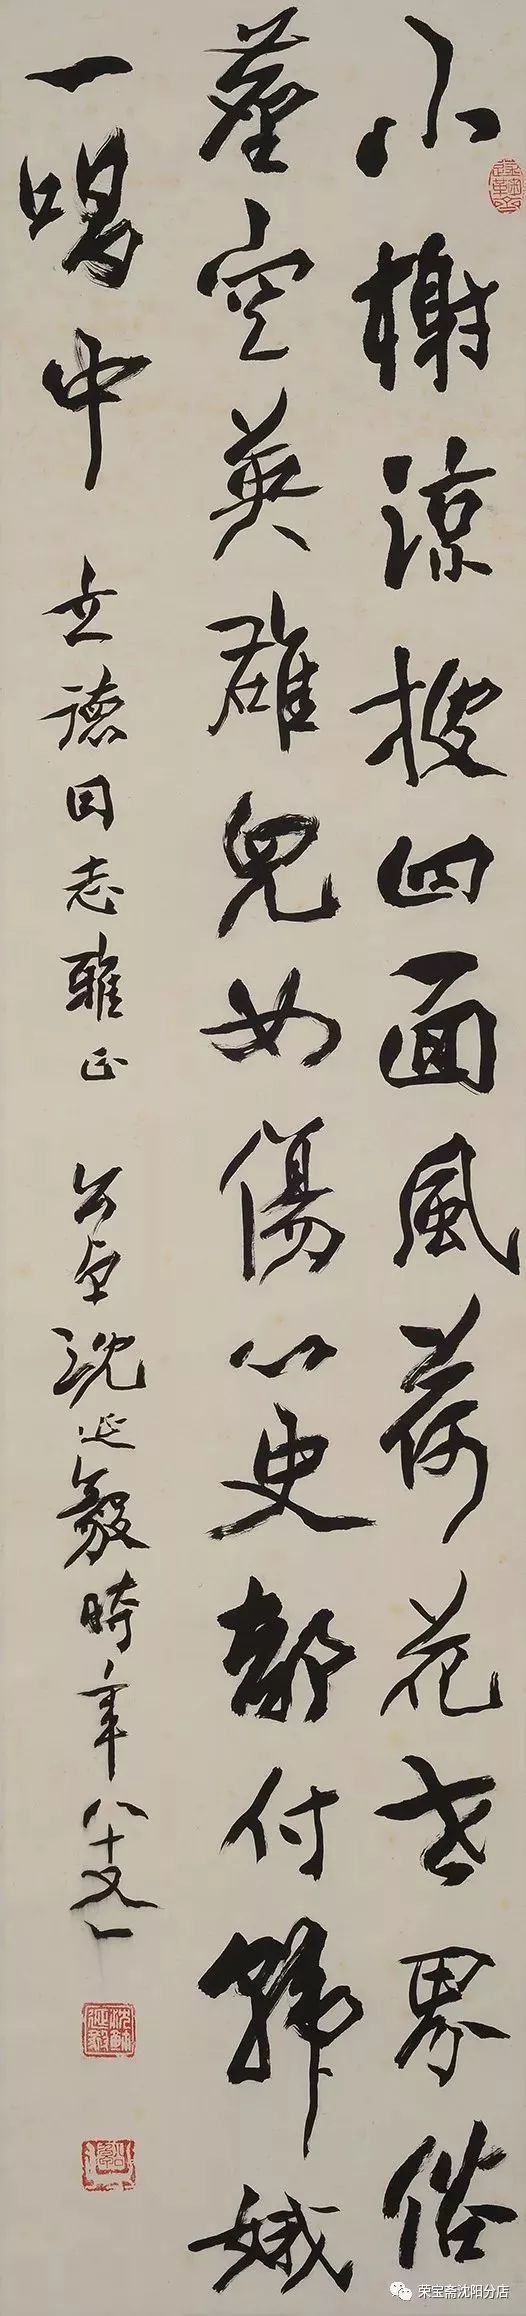 小榭涼搜四面風荷花世界俗
塵空英雄兒女傷心史都付韓娥
一唱中
立德同志雅正 公卓沈延毅時年八十又一
沈延毅
荣宝斋沈阳分店